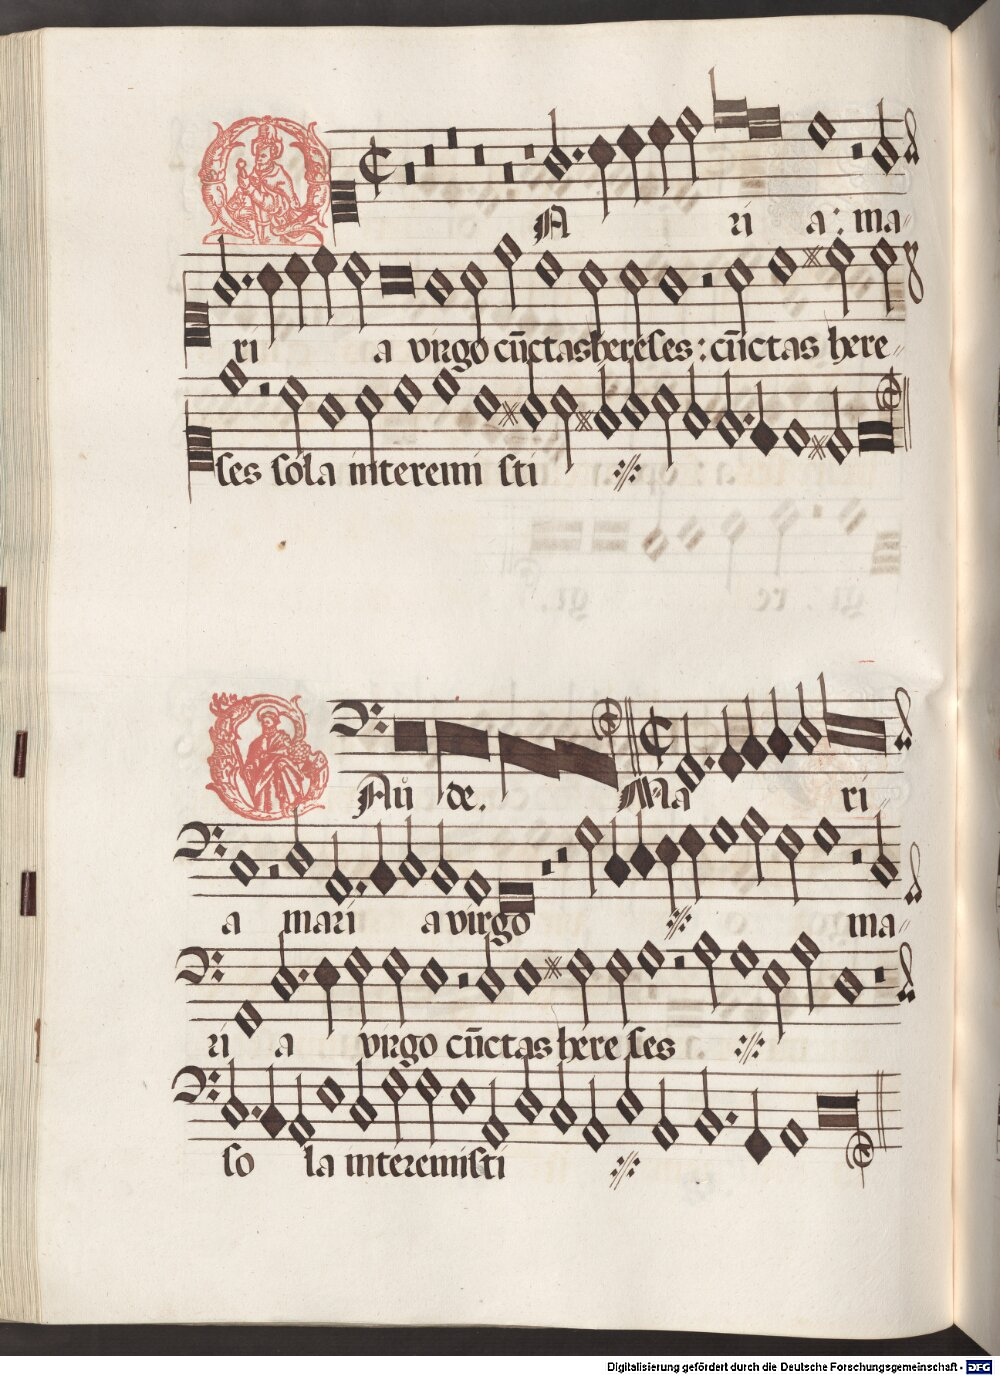 A ri a: ma
ri a virgo cūctas hereses: cūctas here
ses sola interemi sti
Aů de. Ma ri
a mari a virgo ma
ri a virgo cūctas here ses
so la interemisti
Digitalisierung gefördert durch die Deutsche Forschungsgemeinschaft - DFG